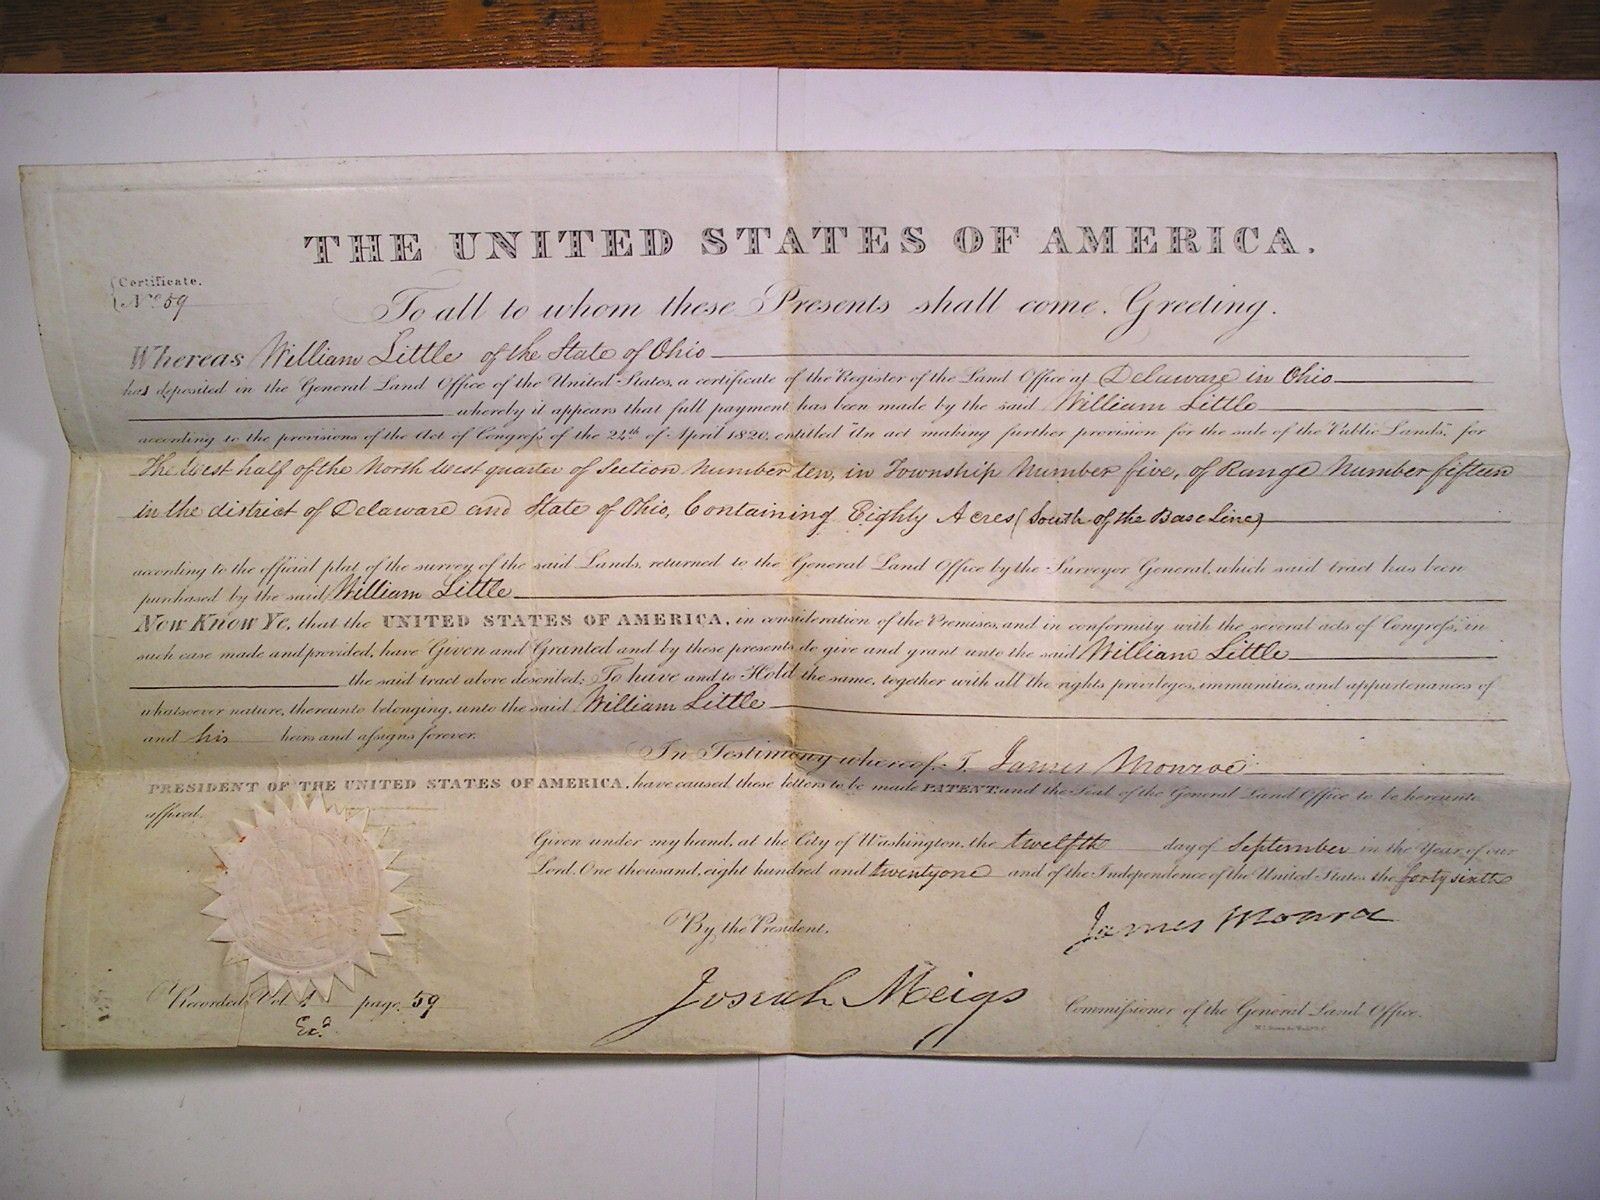 THE UNITED STATES OF AMERICA.
Certificate.
No. 59
To all to whom these Presents shall come, Greeting.
Whereas William Little of the State of Ohio
has deposited in the General Land Office of the United States, a certificate of the Register of the Land Office at Delaware in Ohio
whereby it appears that full payment has been made by the said William Little
according to the provisions of the Act of Congress of the 24th of April 1820, entitled "An act making further provision for the sale of the Public Lands," for
The West half of the North West quarter of Section Number ten, in Township Number five, of Range Number fifteen
in the district of Delaware and State of Ohio, Containing Eighty Acres (South of the Base Line)
according to the official plat of the survey of the said Lands, returned to the General Land Office by the Surveyor General, which said tract has been
purchased by the said William Little
Now Know Ye, that the UNITED STATES OF AMERICA, in consideration of the Premises, and in conformity with the several acts of Congress, in
such case made and provided, have Given and Granted and by these presents do give and grant unto the said William Little
the said tract above described; To have and to Hold the same, together with all the rights privileges, immunities, and appurtenances of
whatsoever nature, thereunto belonging, unto the said William Little
and his heirs and assigns forever.
In Testimony whereof, I, James Monroe
PRESIDENT OF THE UNITED STATES OF AMERICA, have caused these letters to be made PATENT, and the Seal of the General Land Office to be hereunto
affixed.
Given under my hand, at the City of Washington, the twelfth day of September in the Year of our
Lord, One thousand, eight hundred and twenty one and of the Independence of the United States the forty sixth
By the President,
James Monroe
Josiah Meigs
Commissioner of the General Land Office.
Recorded, Vol. 1 page 59
Exd.